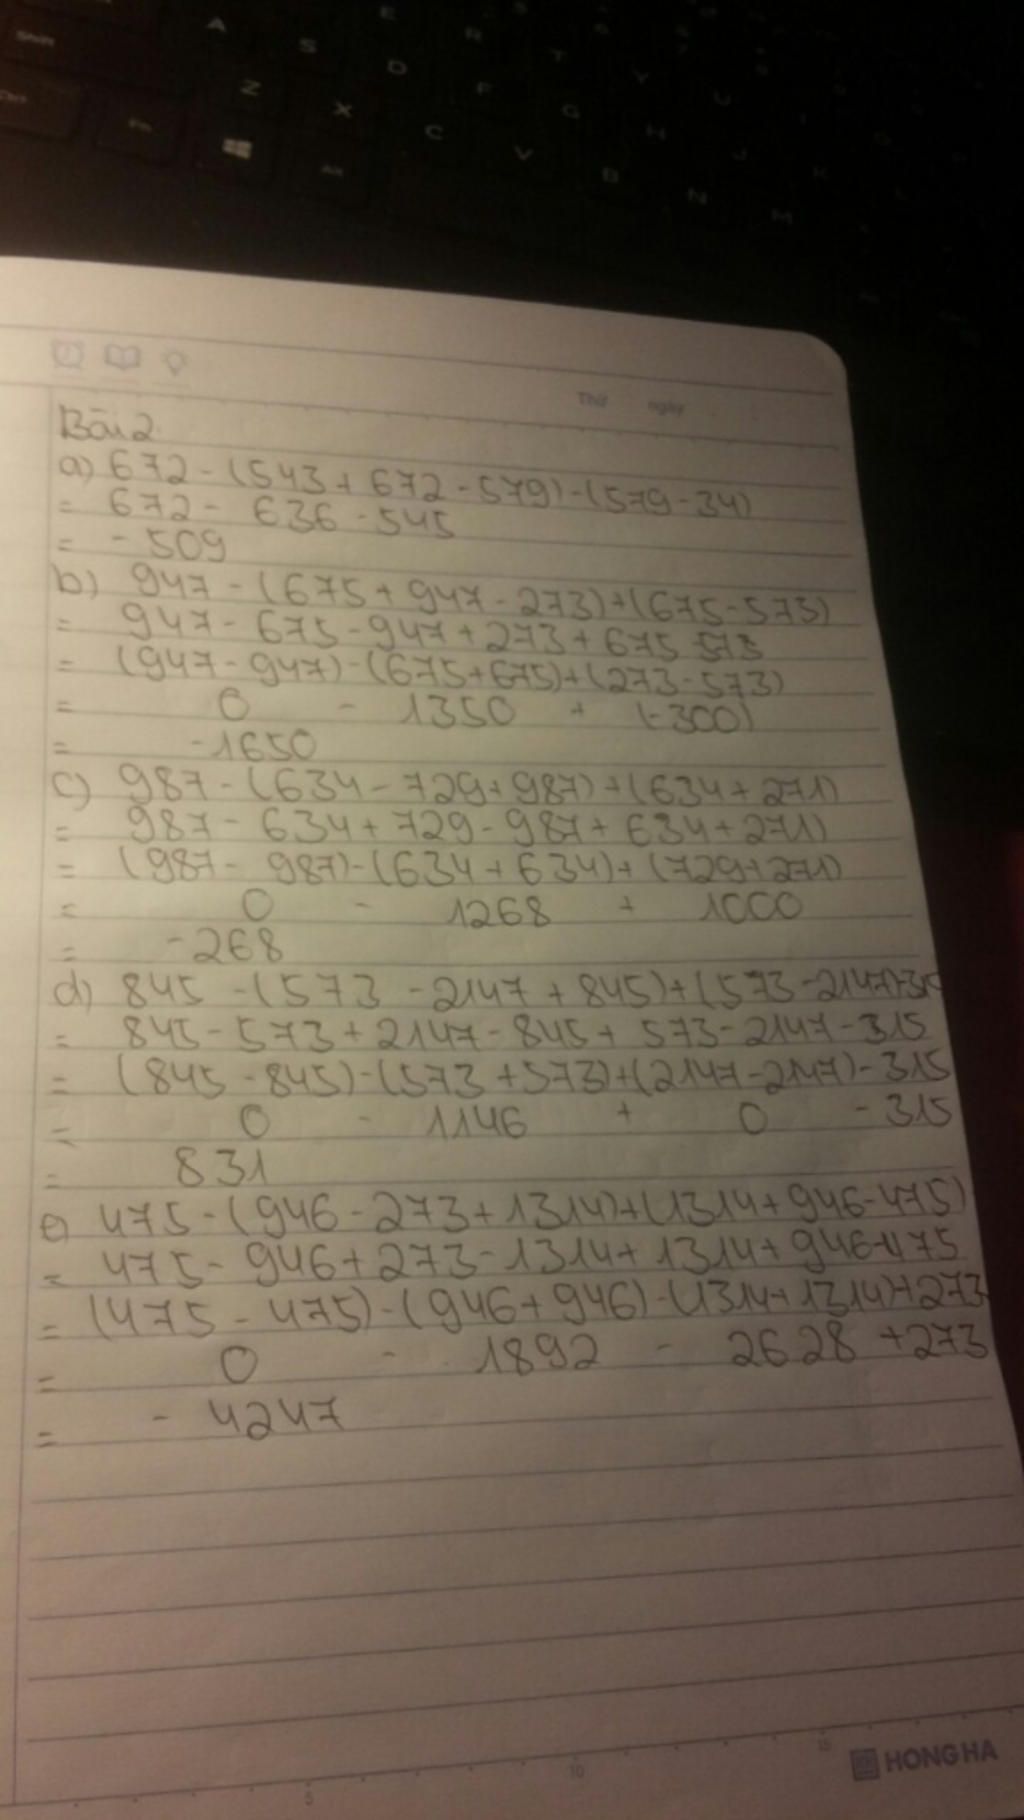 Shift A S D E F R G T H Y J U K
Ctrl Fn Z X C V B N M
Alt
Thứ ngày
Bài 2
a) 672 - (543 + 672 - 579) - (579 - 34)
= 672 - 636 - 545
= - 509
b) 947 - (675 + 947 - 273) + (675 - 573)
= 947 - 675 - 947 + 273 + 675 - 573
= (947 - 947) - (675 + 675) + (273 - 573)
= 0 - 1350 + (-300)
= -1650
c) 987 - (634 - 729 + 987) + (634 + 271)
= 987 - 634 + 729 - 987 + 634 + 271)
= (987 - 987) - (634 + 634) + (729 + 271)
= 0 - 1268 + 1000
= -268
d) 845 - (573 - 2147 + 845) + (573 - 2147) - 315
= 845 - 573 + 2147 - 845 + 573 - 2147 - 315
= (845 - 845) - (573 + 573) + (2147 - 2147) - 315
= 0 - 1146 + 0 - 315
= 831
e) 475 - (946 - 273 + 1314) + (1314 + 946 - 475)
= 475 - 946 + 273 - 1314 + 1314 + 946 - 475
= (475 - 475) - (946 + 946) - (1314 + 1314) + 273
= 0 - 1892 - 2628 + 273
= - 4247
5 10 15
HONG HA